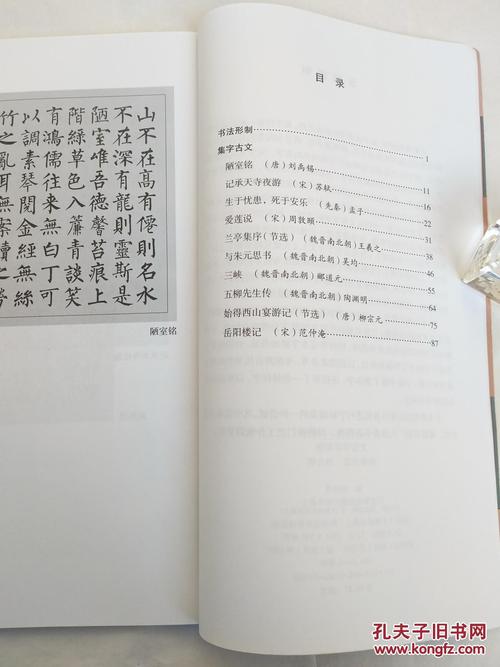 山不在高有僊則名水
不在深有龍則靈斯是
陋室唯吾德馨苔痕上
階綠草色入簾青談笑
有鴻儒往來無白丁可
以調素琴閱金經無絲
竹之亂耳無案牘之勞
陋室铭
目 录
书法形制 1
集字古文
陋室铭 (唐) 刘禹锡 11
记承天寺夜游 (宋) 苏轼 16
生于忧患,死于安乐 (先秦) 孟子
爱莲说 (宋) 周敦颐
兰亭集序(节选) (魏晋南北朝) 王羲之 31
与朱元思书 (魏晋南北朝) 吴均 38
三峡 (魏晋南北朝) 郦道元 55
五柳先生传 (魏晋南北朝) 陶渊明 64
始得西山宴游记(节选) (唐) 柳宗元 75
岳阳楼记 (宋) 范仲淹 87
孔夫子旧书网
www.kongfz.com